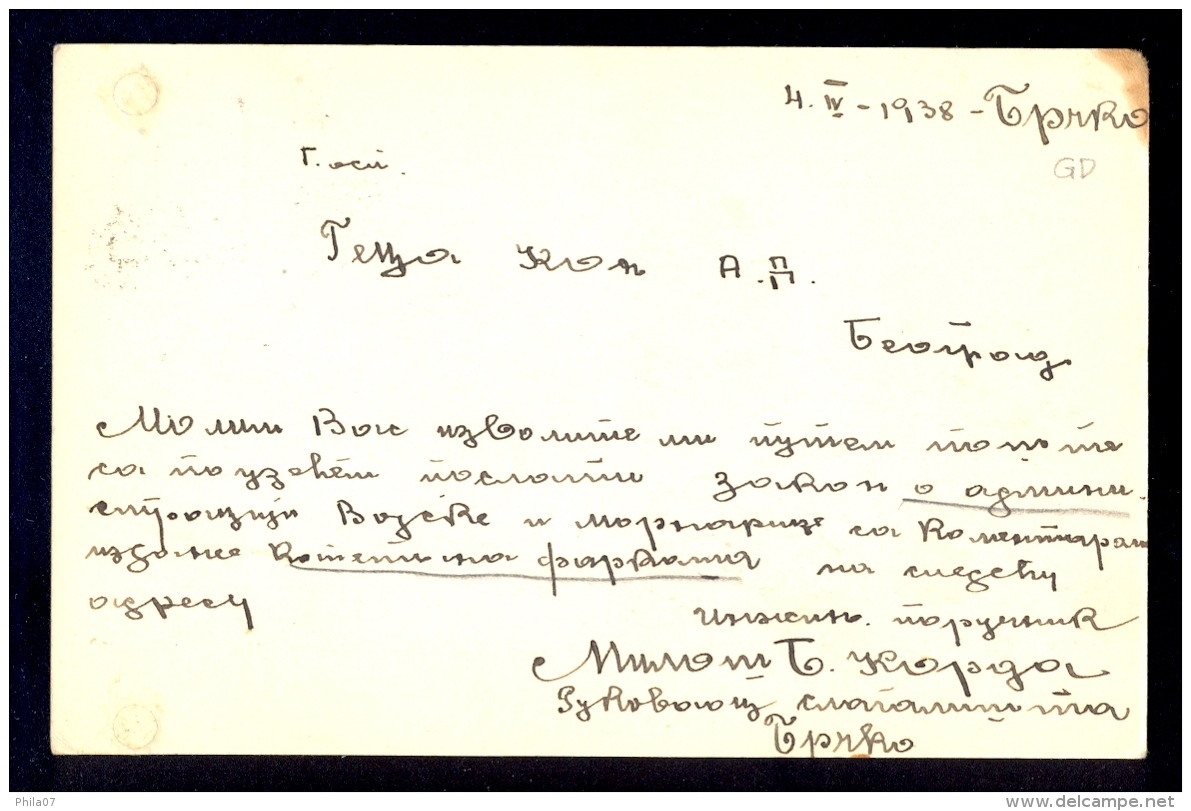 4. IV - 1938 - Брчко
GD
Г. осп.
Геца Кон А. П.
Београд
Молим Вас изволите ми путем поште
са поузећем послати Закон о админи-
стрaцији Војске и морнарице са коментаром
издање на следећу
адресу
Инжињ. поручник
Милош Б. Корда
Руковаоц слагалишта
Брчко
Phila07
www.delcampe.net